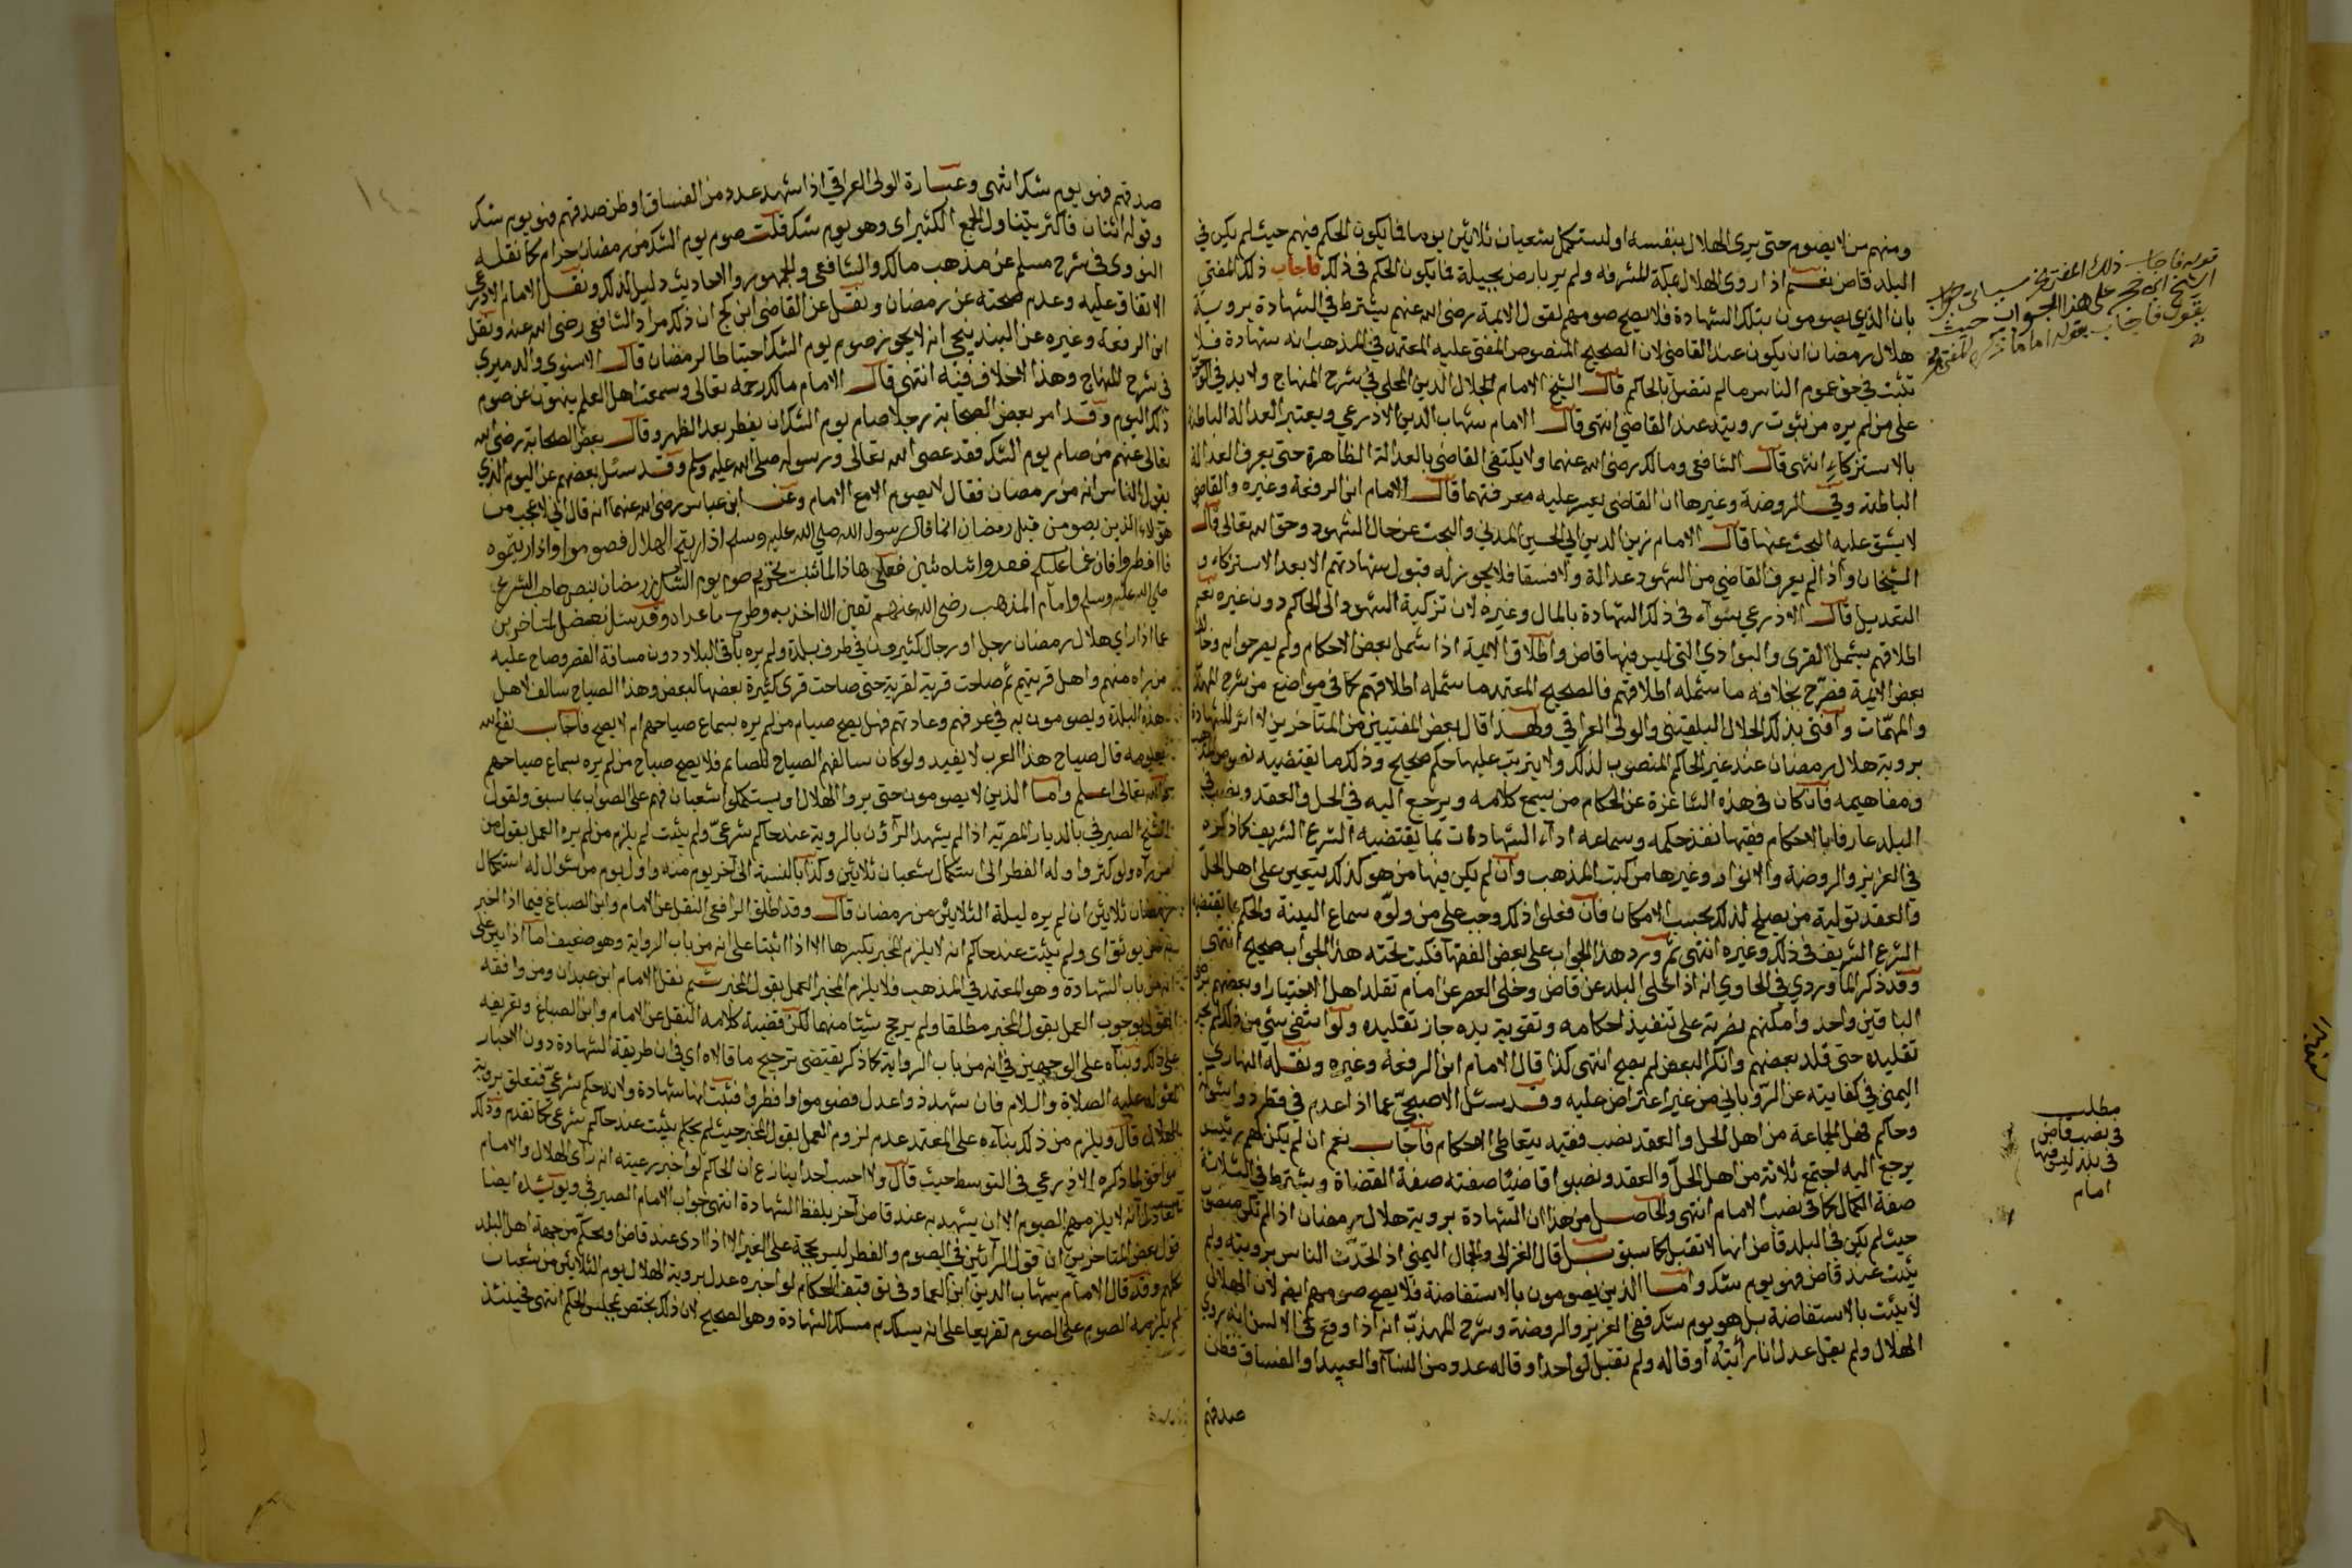 ومنهم من لا يصوم حتى يرى الهلال بنفسه او يستكمل شعبان ثلاثين يوما فما يكون الحكم فيهم حيث لم يكن في
البلد قاض نعم اذا روى الهلال بمكة المشرفه ولم ير بارض بجيلة فما يكون الحكم في ذلك فاجاب ذلك المفتي
بان الذين يصومون بتلك الشهادة فلا يصح صومهم لقول الائمة رضي الله عنهم يشترط في الشهادة بروية
هلال رمضان ان يكون عند القاضي لان الصحيح المنصوص المفتى عليه المعتمد في المذهب انه شهادة فلا
تثبت في حق عموم الناس ما لم تتصل بالحاكم قال الشيخ الامام الجلال الدين المحلي في شرح المنهاج ولا بد في
على من لم يره من ثبوت رويته عند القاضي انتهى قال الامام شهاب الدين الاذرعي ويعتبر العدالة الباطنة
بالاستزكاء انتهى قال الشافعي ومالك رضي الله عنهما ولا يكتفي القاضي بالعدالة الظاهرة حتى يعرف العدالة
الباطنة وفي الروضة وغيرها ان القاضي يعسر عليه معرفتهما قال الامام ابن الرفعة وغيره والقاضي
لا يشق عليه البحث عنها قال الامام زين الدين ابي الحسين المدني والبحث عن حال الشهود وحق الله تعالى قال
الشيخان واذا لم يعرف القاضي من الشهود عدالة ولا فسقا فلا يجوز له قبول شهادتهم الا بعد الاستزكاء و
التعديل قال الاذرعي سواء في ذلك الشهادة بالمال وغيره لان تزكية الشهود الى الحاكم دون غيره نعم
اطلاقهم يشمل القرى والبوادي التي ليس فيها قاض واطلاق الائمة اذا شمل بعض الاحكام ولم يصرحوا به وخالف
بعض الائمة فصرح بخلافه ما شمله اطلاقهم فالصحيح المعتمد ما شمله اطلاقهم كما في مواضع من شرح المهذب
والمهمات وافتى بذلك الجلال البلقيني والولي العراقي ولهذا قال بعض المفتيين من المتاخرين لا اثر للشهادة
بروية هلال رمضان عند غير الحاكم المنصوب لذلك ولا يترتب عليها حكم صحيح وذلك ما يقتضيه نصوص المذهب
ومفاهيمه فان كان في هذه الشاغرة عن الحكام من يسمع كلامه ويرجع اليه في الحل والعقد ونصب في
البلد عارفا بالاحكام فقيها نفذ حكمه وسماعه اداء الشهادات بما يقتضيه الشرع الشريف كما ذكره
في العزيز والروضة والانوار وغيرها من كتب المذهب وان لم يكن فيها من هو كذلك يتعين على اهل الحل
والعقد تولية من يصلح لذلك بحسب الامكان فان فعلوا ذلك وجب على من ولوه سماع البينة والحكم بما يقتضيه
الشرع الشريف في ذلك وغيره انتهى ثم ورد هذا الجواب على بعض الفقها فكتب تحته هذا الجواب صحيح انتهى
وقد ذكر الماوردي في الحاوي انه اذا خلى البلد عن قاض وخلى العصر عن امام تقلد اهل الاختيار او بعضهم برضى
الباقين واحد وامكنهم نصرته على تنفيذ احكامه وتقوية يده جاز تقليده ولو انتفى شي من ذلك لم يجز
تقليده حتى قلد بعضهم وانكر البعض لم يصح انتهى كذا قال الامام ابن الرفعة وغيره ونقله النهاري
اليمني في كفايته عن الروياني من غير اعتراض عليه وقد سئل الاصبحي عما اذا عدم في قطر ذو اشوكة
وحاكم فهل لجماعة من اهل الحل والعقد نصب فقيه يتعاطى الاحكام فاجاب نعم ان لم يكن لهم رئيس
يرجع اليه اجتمع ثلاثة من اهل الحل والعقد ونصبوا قاضيا صفته صفة القضاة ويشترط في الثلاثة
صفة الكمال كما في نصب الامام انتهى والحاصل من هذا ان الشهادة بروية هلال رمضان اذا لم تكن منصوب
حيث لم يكن في البلد قاض انها لا تقبل كما سبق بل قال الغزالي والجمال اليمني اذا تحدث الناس برويته ولم
يثبت عند قاض فهو يوم شك واما الذين يصومون بالاستفاضة فلا يصح صومهم ايضا لان الهلال
لا يثبت بالاستفاضة بل هو يوم شك ففي العزيز والروضة وشرح المهذب انه اذا وقع في الالسن انه روي
الهلال ولم يقل عدل انا رايته او قاله ولم تقبل لواحد او قاله عدد من النساء او العبيد او الفساق فظن
صدقهم
قوله فاجاب ذلك المفتي الخ سياتي جواب
الشيخ ابن حجر على هذا الجواب حيث
يقول فاجاب بقوله اما ما ذكره المفتي الخ
مطلب
في نصب قاض
في بلد ليس فيها
امام
صدقهم فهو يوم شك انتهى وعبارة الولي العراقي اذا شهد عدد من الفساق او ظن صدقهم فهو يوم شك
وقوله اثنان فاكثر يتناول الجمع الكثير اى وهو يوم شك فكانت صوم يوم الشك من رمضان حرام كما نقله
النووى في شرح مسلم عن مذهب مالك والشافعي وللجمهور والاحاديث دليل لذلك ونقل الامام الاذرعي
الاتفاق عليه وعدم صحته عن رمضان ونقل عن القاضي ابن كج ان ذلك مراد الشافعي رضي الله عنه ونقل
ابن الرفعة وغيره عن البندنيجي انه لا يجوز صوم يوم الشك احتياطا لرمضان قال الاسنوى والدميري
في شرح المنهاج وهذا لا خلاف فيه انتهى قال الامام مالك رحمه تعالى وسمعت اهل العلم ينهون عن صوم
ذلك اليوم وقد امر بعض الصحابة رجلا صام يوم الشك ان يفطر بعد الظهر وقال بعض الصحابة رضي الله
تعالى عنهم من صام يوم الشك فقد عصى الله تعالى ورسوله صلى الله عليه وسلم وقد سئل بعضهم عن اليوم الذي
يقول الناس انه من رمضان فقال لا يصوم الا مع الامام وعن ابن عباس رضي الله عنهما انه قال اني لاعجب من
هؤلاء الذين يصومون قبل رمضان انما قال رسول الله صلى الله عليه وسلم اذا رايتم الهلال فصوموا واذا رايتموه
فافطروا فان غم عليكم فعدوا ثلاثين فعلى هاذا لما ثبت تحريم صوم يوم الشك من رمضان بنص صاحب الشرع
صلى الله عليه وسلم وامام المذهب رضي الله عنهم تعين الاخذ به وطرح ما عداه وقد سئل بعض المتاخرين
عما اذا راى هلال رمضان رجل او رجال كثيرون في طرف بلدة ولم يره باقي البلاد دون مسافة القصر وصاح عليه
من راه منهم واهل قريتهم ثم صاحت قرية لقرية حتى صاحت قرى كثيرة بعضها لبعض وهذا الصياح سالف لاهل
هذه البلدة ويصومون به في عرفهم وعادتهم فهل يصح صيام من لم يره بسماع صياحهم ام لا يصح فاجاب نفع الله
بعلومه قال صياح هذا العرب لا يفيد ولو كان سالفهم الصياح للصائم فلا يصح صيام من لم يره بسماع صياحهم
والله تعالى اعلم واما الذين لا يصومون حتى يروا الهلال او يستكملوا شعبان فهم على الصواب بما سبق ولقول
الشيخ الصيرفي بالديار المصريه اذا لم يشهد الراؤن بالروية عند حاكم شرعي ولم يثبت لم يلزم من لم يره العمل بقول من
راه ولو كثروا وله الفطر الى استكمال شعبان ثلاثين وكذا بالنسبة الى آخر يوم منه واول يوم من شوال له استكمال
رمضان ثلاثين ان لم يره ليلة الثلاثين من رمضان قال وقد اطلق الرافعي النقل عن الامام وابن الصباغ فيما اذا اخبر
به من يوثق اى ولم يثبت عند حاكم انه لا يلزم المخبر بكسرها الا اذا اثبتنا على انه من باب الرواية وهو ضعيف اما اذا بني على
انه من باب الشهادة وهو المعتمد في المذهب فلا يلزم المخبر العمل بقول المخبر ثم نقل الامام ابن عبدان ومن وافقه
القول بوجوب العمل بقول المخبر مطلقا ولم يرجح شيئا منهما لكن قضية كلامه النقل عن الامام وابن الصباغ وتعريفه
على ذلك وبناه على الوجهين في انه من باب الرواية كما ذكر يقتضي ترجيح ما قالاه اي في ان طريقة الشهادة دون الاخبار
لقوله عليه الصلاة والسلام فان شهد ذوا عدل فصوموا وافطروا فثبت انها شهادة ولانه حكم شرعي فتعلق بروية
الهلال قال ويلزم من ذلك بناءه على المعتمد عدم لزوم العمل بقول المخبر حيث لم يحكم يثبت عند حاكم شرعي كما تقدم وذلك
موافق لما ذكره الاذرعي في التوسط حيث قال ولا احسب احدا ينازع ان الحاكم لو اخبر رعيته انه راى الهلال والامام
العادل انه لا يلزمهم الصوم الا ان يشهد به عند قاض آخر بلفظ الشهادة انتهى جواب الامام الصيرفي ويويده ايضا
قول بعض المتاخرين ان قول الرائين في الصوم والفطر ليس بحجة على الغير الا اذا ادى عند قاض او محكم من جهة اهل البلد
كلهم وقد قال الامام شهاب الدين ابن العماد في توقيف الحكام لو اخبره عدل بروية الهلال يوم الثلاثين من شعبان
لم يلزمه الصوم على الصوم تفريعا على انه يسلك به مسلك الشهادة وهو الصحيح لان ذلك يختص بمجلس الحكم انتهى فحينئذ